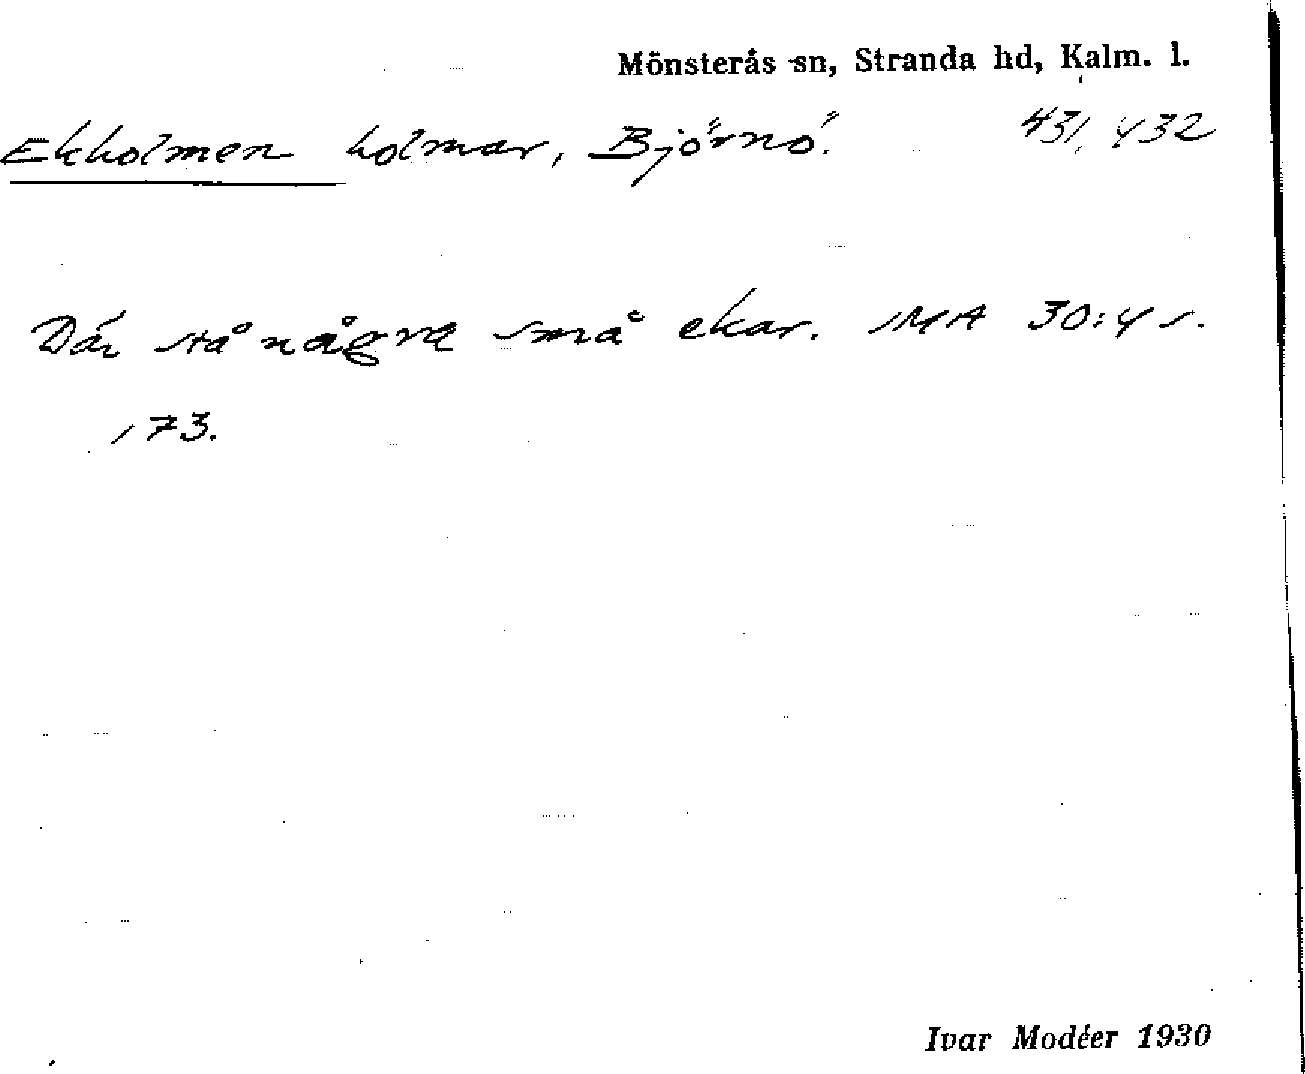 Mönsterås sn, Stranda hd, Kalm. l.
Ekholmen holmar, Björnö. 431, 432
Där stå några små ekar. MA 30:4 s.
173.
Ivar Modéer 1930